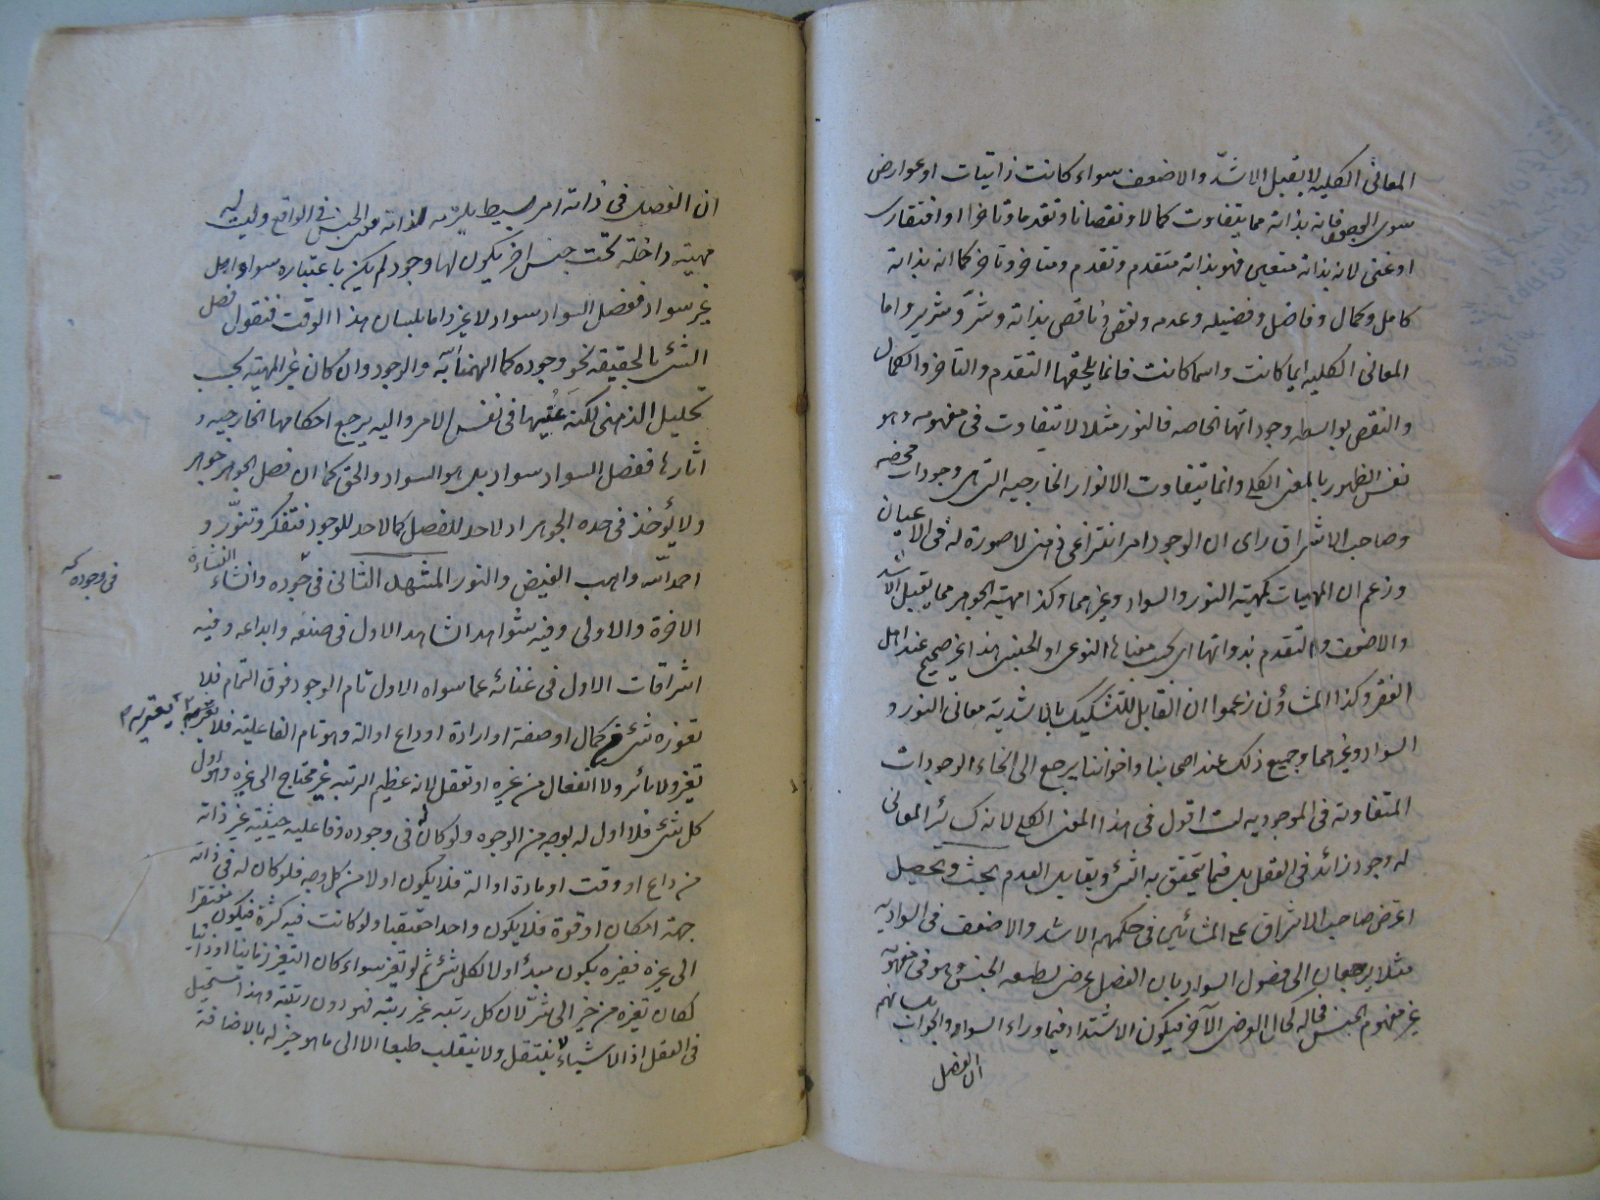 المعانى الكليه لا يقبل الاشدّ والاضعف سواء كانت ذاتيات او عوارض
سوى الوجود فانه بذاته مما يتفاوت كمالا ونقصانا وتقدما وتاخرا او افتقارا
او غنى لانه بذاته متعين فهو بذاته متقدم وتقدم ومتاخر وتاخر كما انه بذاته
كامل وكمال وفاضل وفضيله وعدمه ونقص ناقص بذاته وشرّ وشرير واما
المعانى الكليه ايما كانت واسما كانت فانما يلحقها التقدم والتاخر والكمال
والنقص بواسطه وجوداتها الخاصه فالنور مثلا لا يتفاوت فى مفهومه وهو
نفس الظهور بالمعنى الكلى وانما يتفاوت الانوار الخارجيه التى هى وجودات محضه
وصاحب الاشراق راى ان الوجود امر انتزاعى ذهنى لا صورة له فى الاعيان
وزعم ان المهيات كمهية النور والسواد وغيرهما وكذا مهية الجوهر مما يقبل الاشد
والاضعف والتقدم بذواتها اى بحسب معناها النوعى او الجنسى هذا غير صحيح عند اهل
الفقر وكذا المشاؤن زعموا ان القابل للتشكيك بالاشدية معانى النور و
السواد وغيرهما وجميع ذلك عند اصحابنا واخواننا يرجع الى انحاء الوجودات
المتفاوته فى الموجوديه لست اقول فى هذا المعنى الكلى لانه كسائر المعانى
له وجود زائد فى العقل بل فيما يتحقق به الشئ ويقابل العدم بحث وتحصيل
اعترض صاحب الاشراق على المشائين فى حكمهم الاشد والاضعف فى السواديه
مثلا يرجعان الى فصول السواد بان الفصل عرض لطبيعه الجنس وهو فى مفهومه
غير مفهوم الجنس فحاله كحال العرض الآخر فيكون الاشتداد فيما وراء السواد والجواب بلسانهم
ان الفصل
ان الفصل فى ذاته امر بسيط يلزمه لذاته معنى الجنس فى الواقع وليست له
مهية داخلة تحت جنس اخر يكون لها وجود لم يكن باعتباره سوادا بل
غير سواد ففصل السواد سواد لا غير واما بلسان هذا الوقت فنقول فصل
الشئ بالحقيقه نحو وجوده كما الهمنا به والوجود وان كان غير المهية بحسب
تحليل الذهنى لكنه عينها فى نفس الامر واليه يرجع احكامها الخارجيه و
اثارها ففصل السواد سواد بل هو السواد والحق كما ان فصل الجوهر جوهر
ولا يؤخذ فى حده الجوهر اذ لا حد للفصل كما لا حد للوجود فتفكر وتنوّر و
احمد الله واهب الفيض والنور المشهد الثانى فى جوده وانشاء النشاءة
فى وجوده
الاخرة والاولى وفيه شواهد الشاهد الاول فى صنعه وابداعه وفيه
اشراقات الاول فى غنائه عما سواه الاول تام الوجود فوق التمام فلا
يعوزه شئ من كمال او صفة او ارادة او داع او الة وهو تام الفاعلية فلا يعتريه
تغير ولا تاثر ولا انفعال من غيره او تعقل لانه عظيم الرتبه غير محتاج الى غيره وهو اول
كل شئ فلا اول له بوجه من الوجوه ولو كان له فى وجوده وفاعليه حيثيه غير ذاته
من داع او وقت او مادة او الة فلا يكون اولا من كل وجه فلو كان له فى ذاته
جهة امكان او قوة فلا يكون واحدا حقيقيا ولو كانت فيه كثرة فيكون مفتقرا
الى غيره فغيره يكون مبدء اولا لكل شئ ثم لو تغير سواء كان التغير زمانيا او ذاتيا
لكان تغيره من خير الى شر لان كل رتبه غير رتبته فهو دون رتبته وهذا مستحيل
فى العقل اذ الاشياء لا ينتقل ولا ينقلب طبعا الا الى ما هو خير له بالاضافة